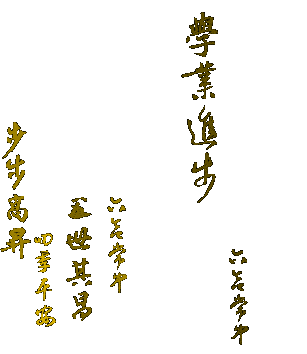 學業進步
六合常中
六合常中
五世其昌
四季平安
步步高昇